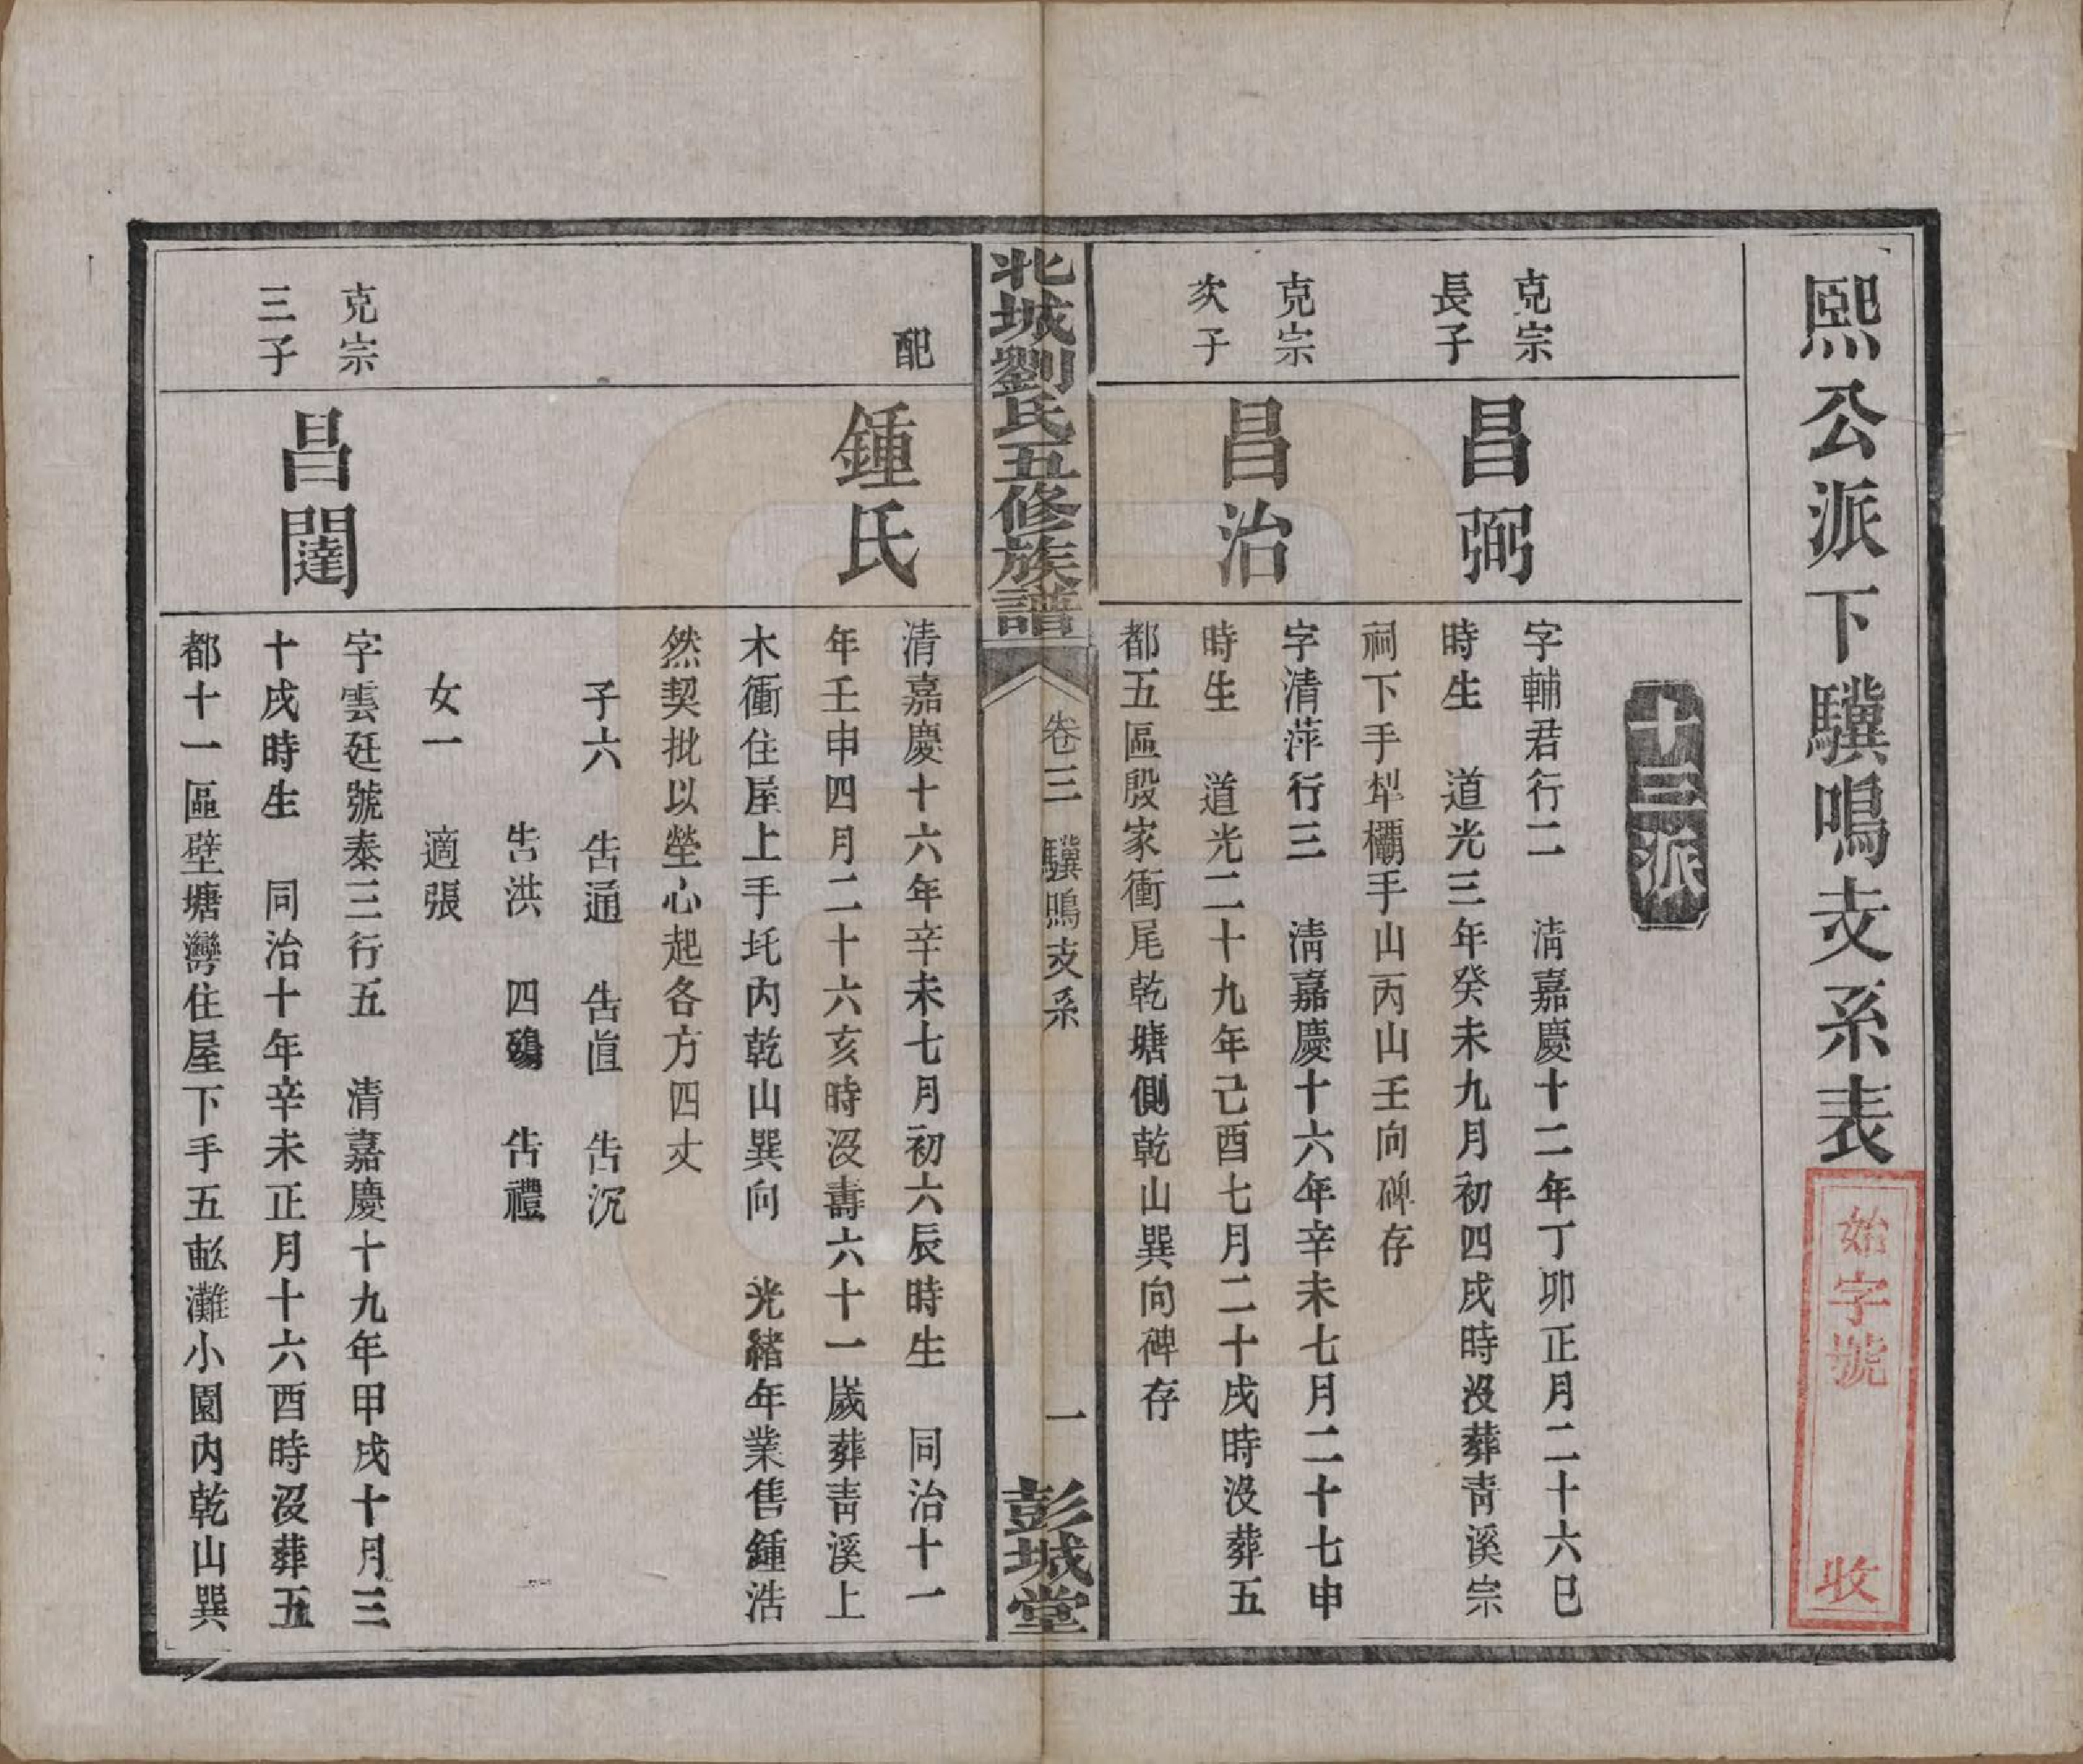 熙公派下驥鳴支系表
始字號 收
十三派
克宗
長子
昌弼
字輔君行二 清嘉慶十二年丁卯正月二十六巳
時生 道光三年癸未九月初四戌時沒葬青溪宗
祠下手犁欛手山丙山壬向碑存
克宗
次子
昌治
字清萍行三 清嘉慶十六年辛未七月二十七申
時生 道光二十九年己酉七月二十戌時沒葬五
都五區殷家衝尾乾塘側乾山巽向碑存
北城劉氏五修族譜
卷三 驥鳴支系
一
彭城堂
配
鍾氏
清嘉慶十六年辛未七月初六辰時生 同治十一
年壬申四月二十六亥時沒壽六十一歲葬青溪上
木衝住屋上手圫內乾山巽向 光緒年業售鍾浩
然契批以塋心起各方四丈
子六 告通 告直 告沉
告洪 四殤 告禮
女一 適張
克宗
三子
昌闥
字雲廷號泰三行五 清嘉慶十九年甲戌十月三
十戌時生 同治十年辛未正月十六酉時沒葬五
都十一區壁塘灣住屋下手五畝灘小園內乾山巽